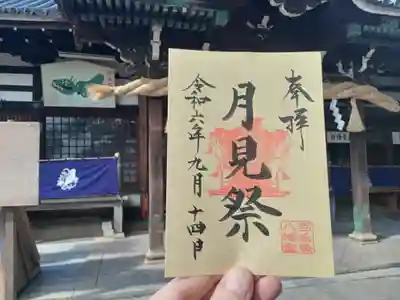 奉拝
月見祭
令和六年九月十四日